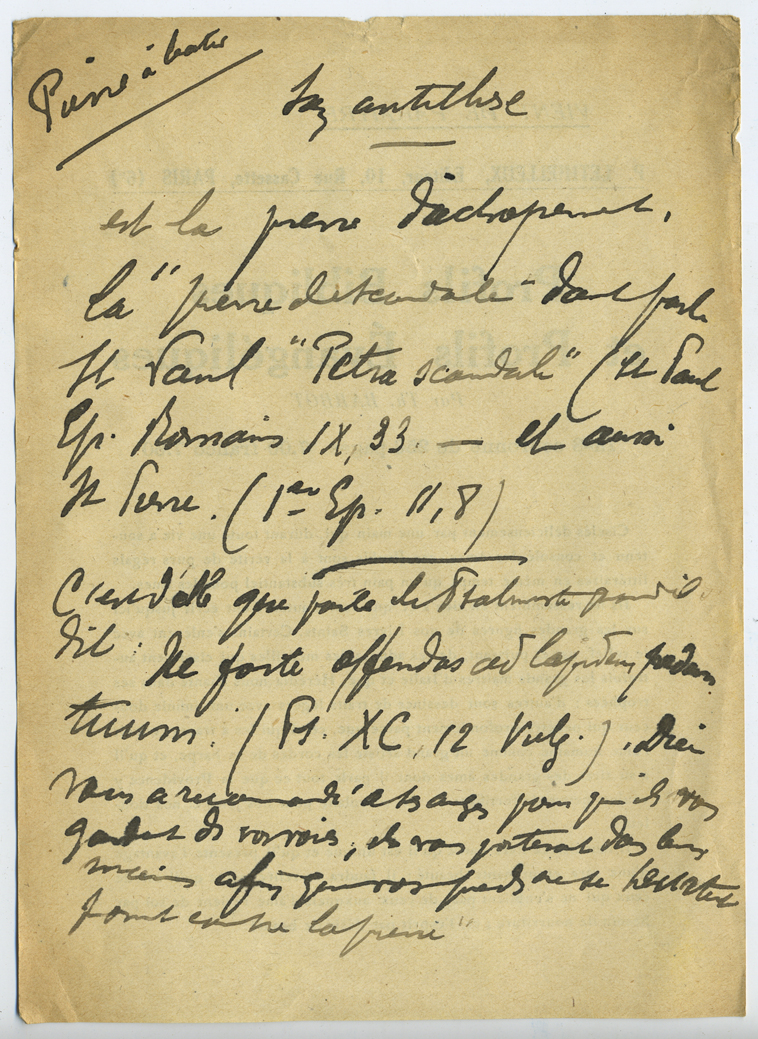 Pierre à
Son antithèse
est la pierre d'achoppement,
la "pierre de scandale" dont parle
St Paul "Petra scandali" (St Paul
Ep. Romains IX, 33. — et aussi
St Pierre. (1ère Ep. II, 8)
C'est d'elle que parle le Psalmiste quand il
dit : Ne forte offendas ad lapidem pedem
tuum. (Ps. XC, 12 Vulg.). Dieu
vous a recommandé à ses anges pour qu'ils vous
gardent ds vos voies, ils vous porteront dans leurs
mains afin que vos pieds ne se heurtent
point contre la pierre"